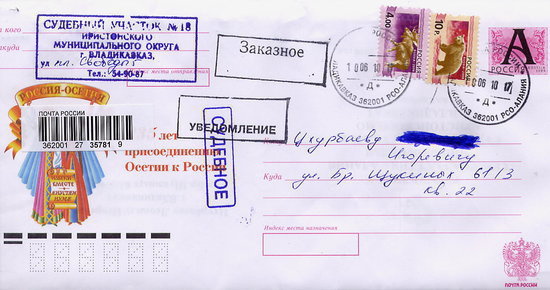 СУДЕБНЫЙ УЧАСТОК № 18
ИРИСТОНСКОГО
МУНИЦИПАЛЬНОГО ОКРУГА
г. ВЛАДИКАВКАЗ,
ул пл. Свободы 5
Тел.: 54-90-87
Заказное
4.00р
10р
РОССИЯ
А
РОССИЯ
ВЛАДИКАВКАЗ 362001 РСО-АЛАНИЯ
06 10 17
Д
РОССИЯ-ОСЕТИЯ
ПОЧТА РОССИИ
362001 27 35781 9
УВЕДОМЛЕНИЕ
СУДЕБНОЕ
лет
присоединения
Осетии к России
Кому
Цкурбаеву
Игоревичу
Куда
ул. Бр. Щукиных 61/3
кв. 22
Индекс места назначения
ПОЧТА РОССИИ